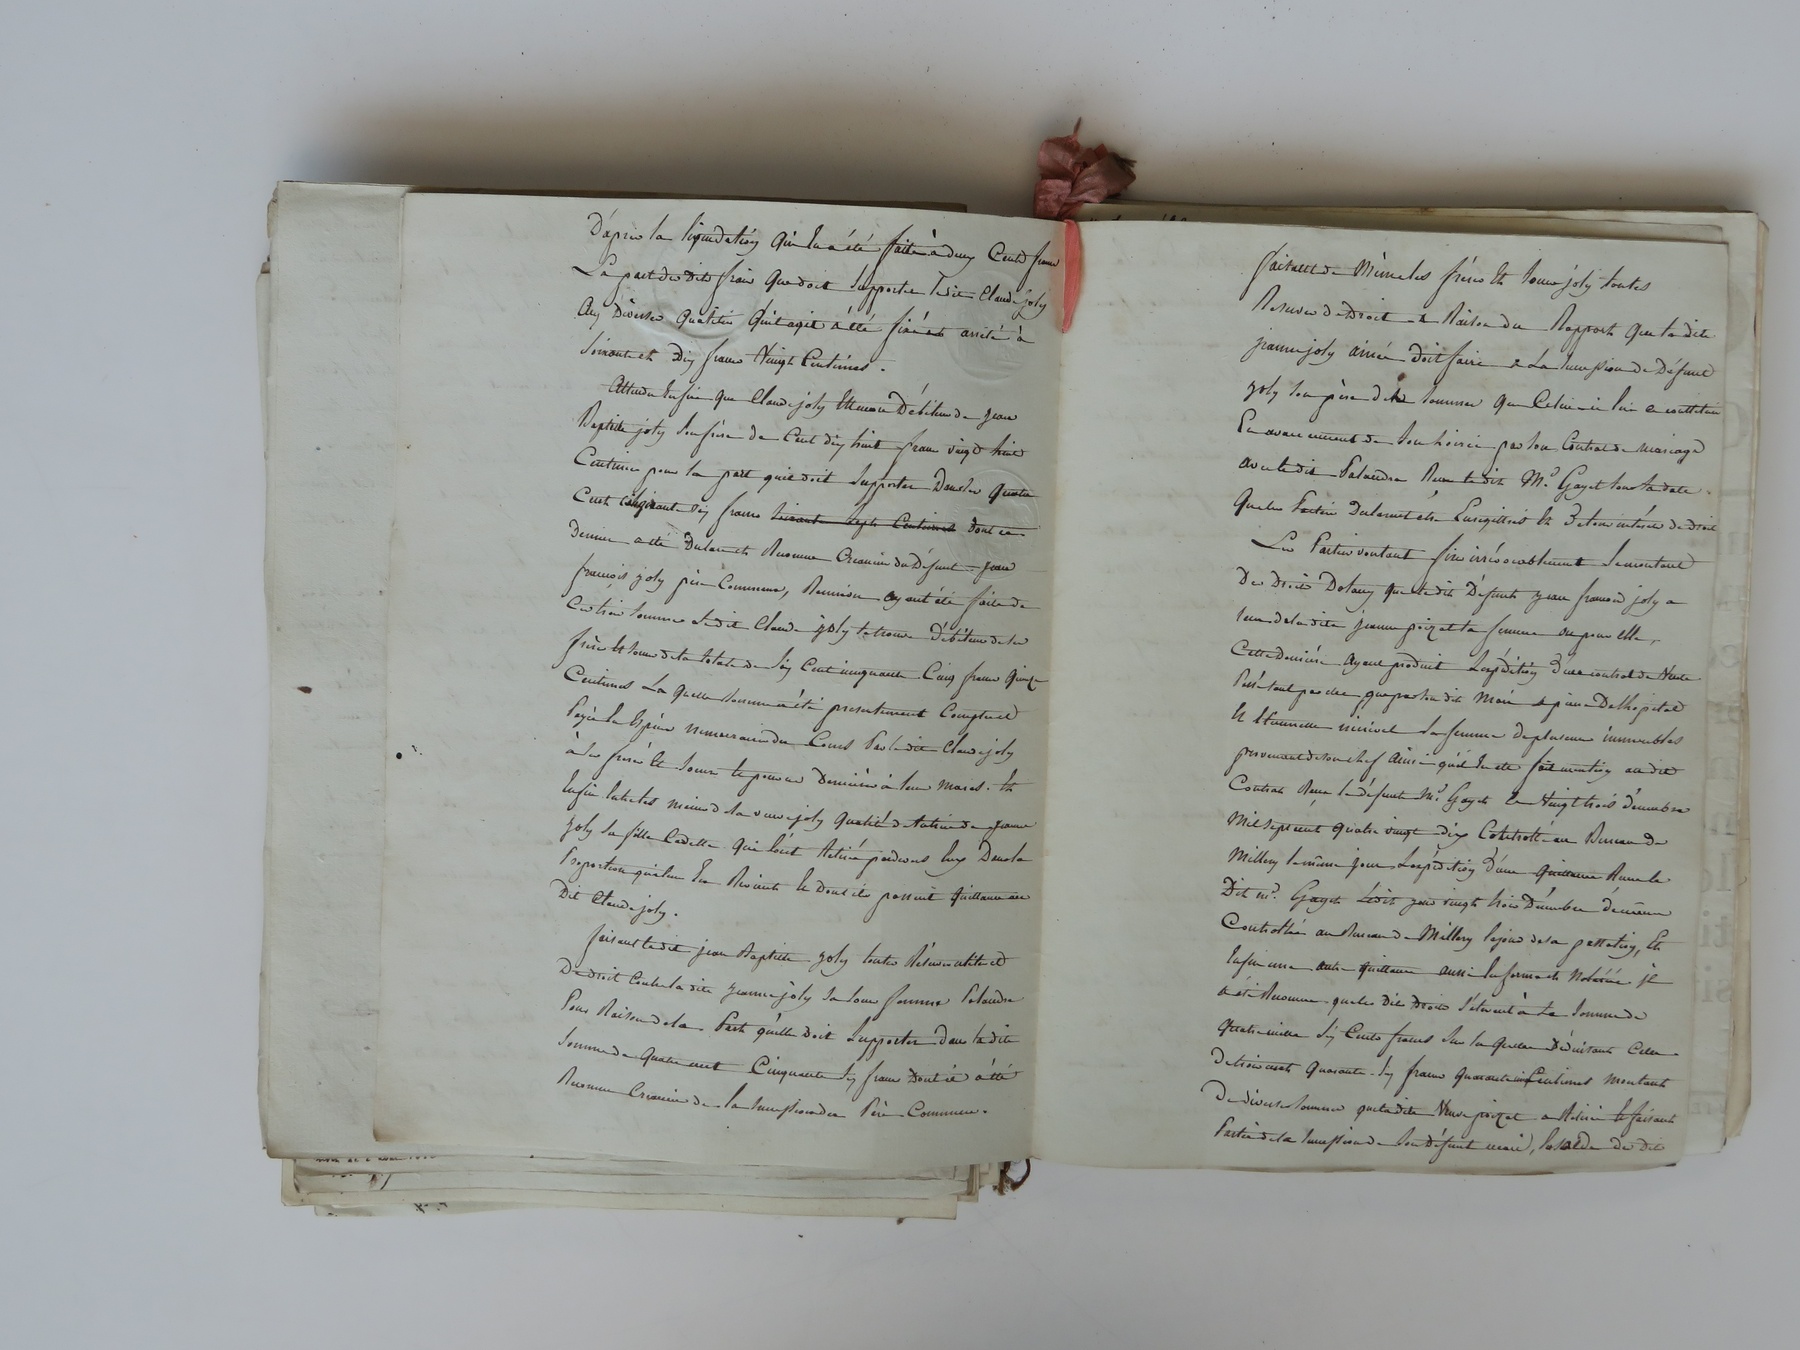 D'après la liquidation qui en a été faite à deux Cents francs
La part des dits frais que doit supporter ledit Claude joly
aux Diverses qualités qu'il agit a été fixée et arrêtée à
Soixante et Dix francs Vingt Centimes.
Attendu enfin que Claude joly Débiteur de jean
Baptiste joly son frère de Cent dix huit francs vingt huit
Centimes pour la part qu'il doit supporter Dans les quatre
Cent cinquante six francs soixante sept Centimes dont ce
Dernier a été Reconnu Créancier du Défunt jean
françois joly père Commun, Réunion ayant été faite de
ces trois sommes Ledit Claude joly se trouve Débiteur de ses
frère et sœur de la totale de Six Cent cinquante Cinq francs quinze
Centimes La quelle somme a été présentement Comptée et
Payée En Espèces numéraire du Cours Par ledit Claude joly
à ses frère et sœurs Dernière à leur maris. Et
Enfin entre les mains de la veuve joly qualité de tutrice de jeanne
joly sa fille Cadette qui l'ont Retiré pardevers Eux Dans la
Proportion qui leur En Revient Et Dont ils passent quittance au
Dit Claude joly.
faisant ledit jean Baptiste joly toutes Réserves utiles et
De droit Contre la dite jeanne joly sa sœur femme Palandre
Pour Raison de la Part qu'elle Doit Supporter Dans la dite
Somme de quatre cent Cinquante six francs Dont il a été
Reconnu Créancier de la Succession du Père Commun.
faisant de Même les frères Et sœur joly toutes
Réserves de Droit à Raison du Rapport que la dite
jeanne joly ainée doit faire à La Succession de Défunt
joly son père de la somme que Celui-ci lui a constituée
En avancement de son hoirie par son Contrat de mariage
avec le dit Palandre Reçu le dit Me. Gayet sous sa date.
Les Parties voulant fixer irrévocablement le montant
De Droits Dotaux que le dit Défunt jean françois joly a
reçu de la dite jeanne poizat sa femme ou pour elle,
Cette dernière ayant produit L'expédition d'un contrat de Vente
Passé tant par elle que par son dit Mari à pierre Delhopital
Et Etiennette sa femme de plusieurs immeubles
provenant de son chef Ainsi qu'il En est fait mention au dit
Contrat Reçu le défunt Me. Gayet le Vingt trois décembre
Mil sept cent quatre vingt dix Controllé au Bureau de
Millery le même jour L'expédition d'une quittance Reçue le
Dit me. Gayet Ledit jour vingt trois Décembre
Controllée au Bureau de Millery le jour de sa passation, Et
Enfin une autre quittance aussi En forme il
a été Reconnu que les Dits Droits s'élevent à La Somme de
Quatre mille Six Cents francs Sur la quelle Déduisant Celle
de trois cent Quarante-Six francs quarante Centimes montant
De diverses sommes que la dite Veuve poizat a Retiré Et faisant
Partie de la Succession de Son Défunt mari, le solde de Dits